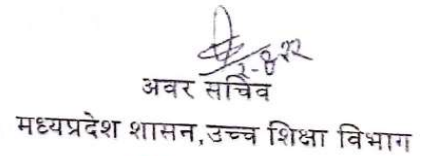 अवर सचिव
मध्यप्रदेश शासन,उच्च शिक्षा विभाग